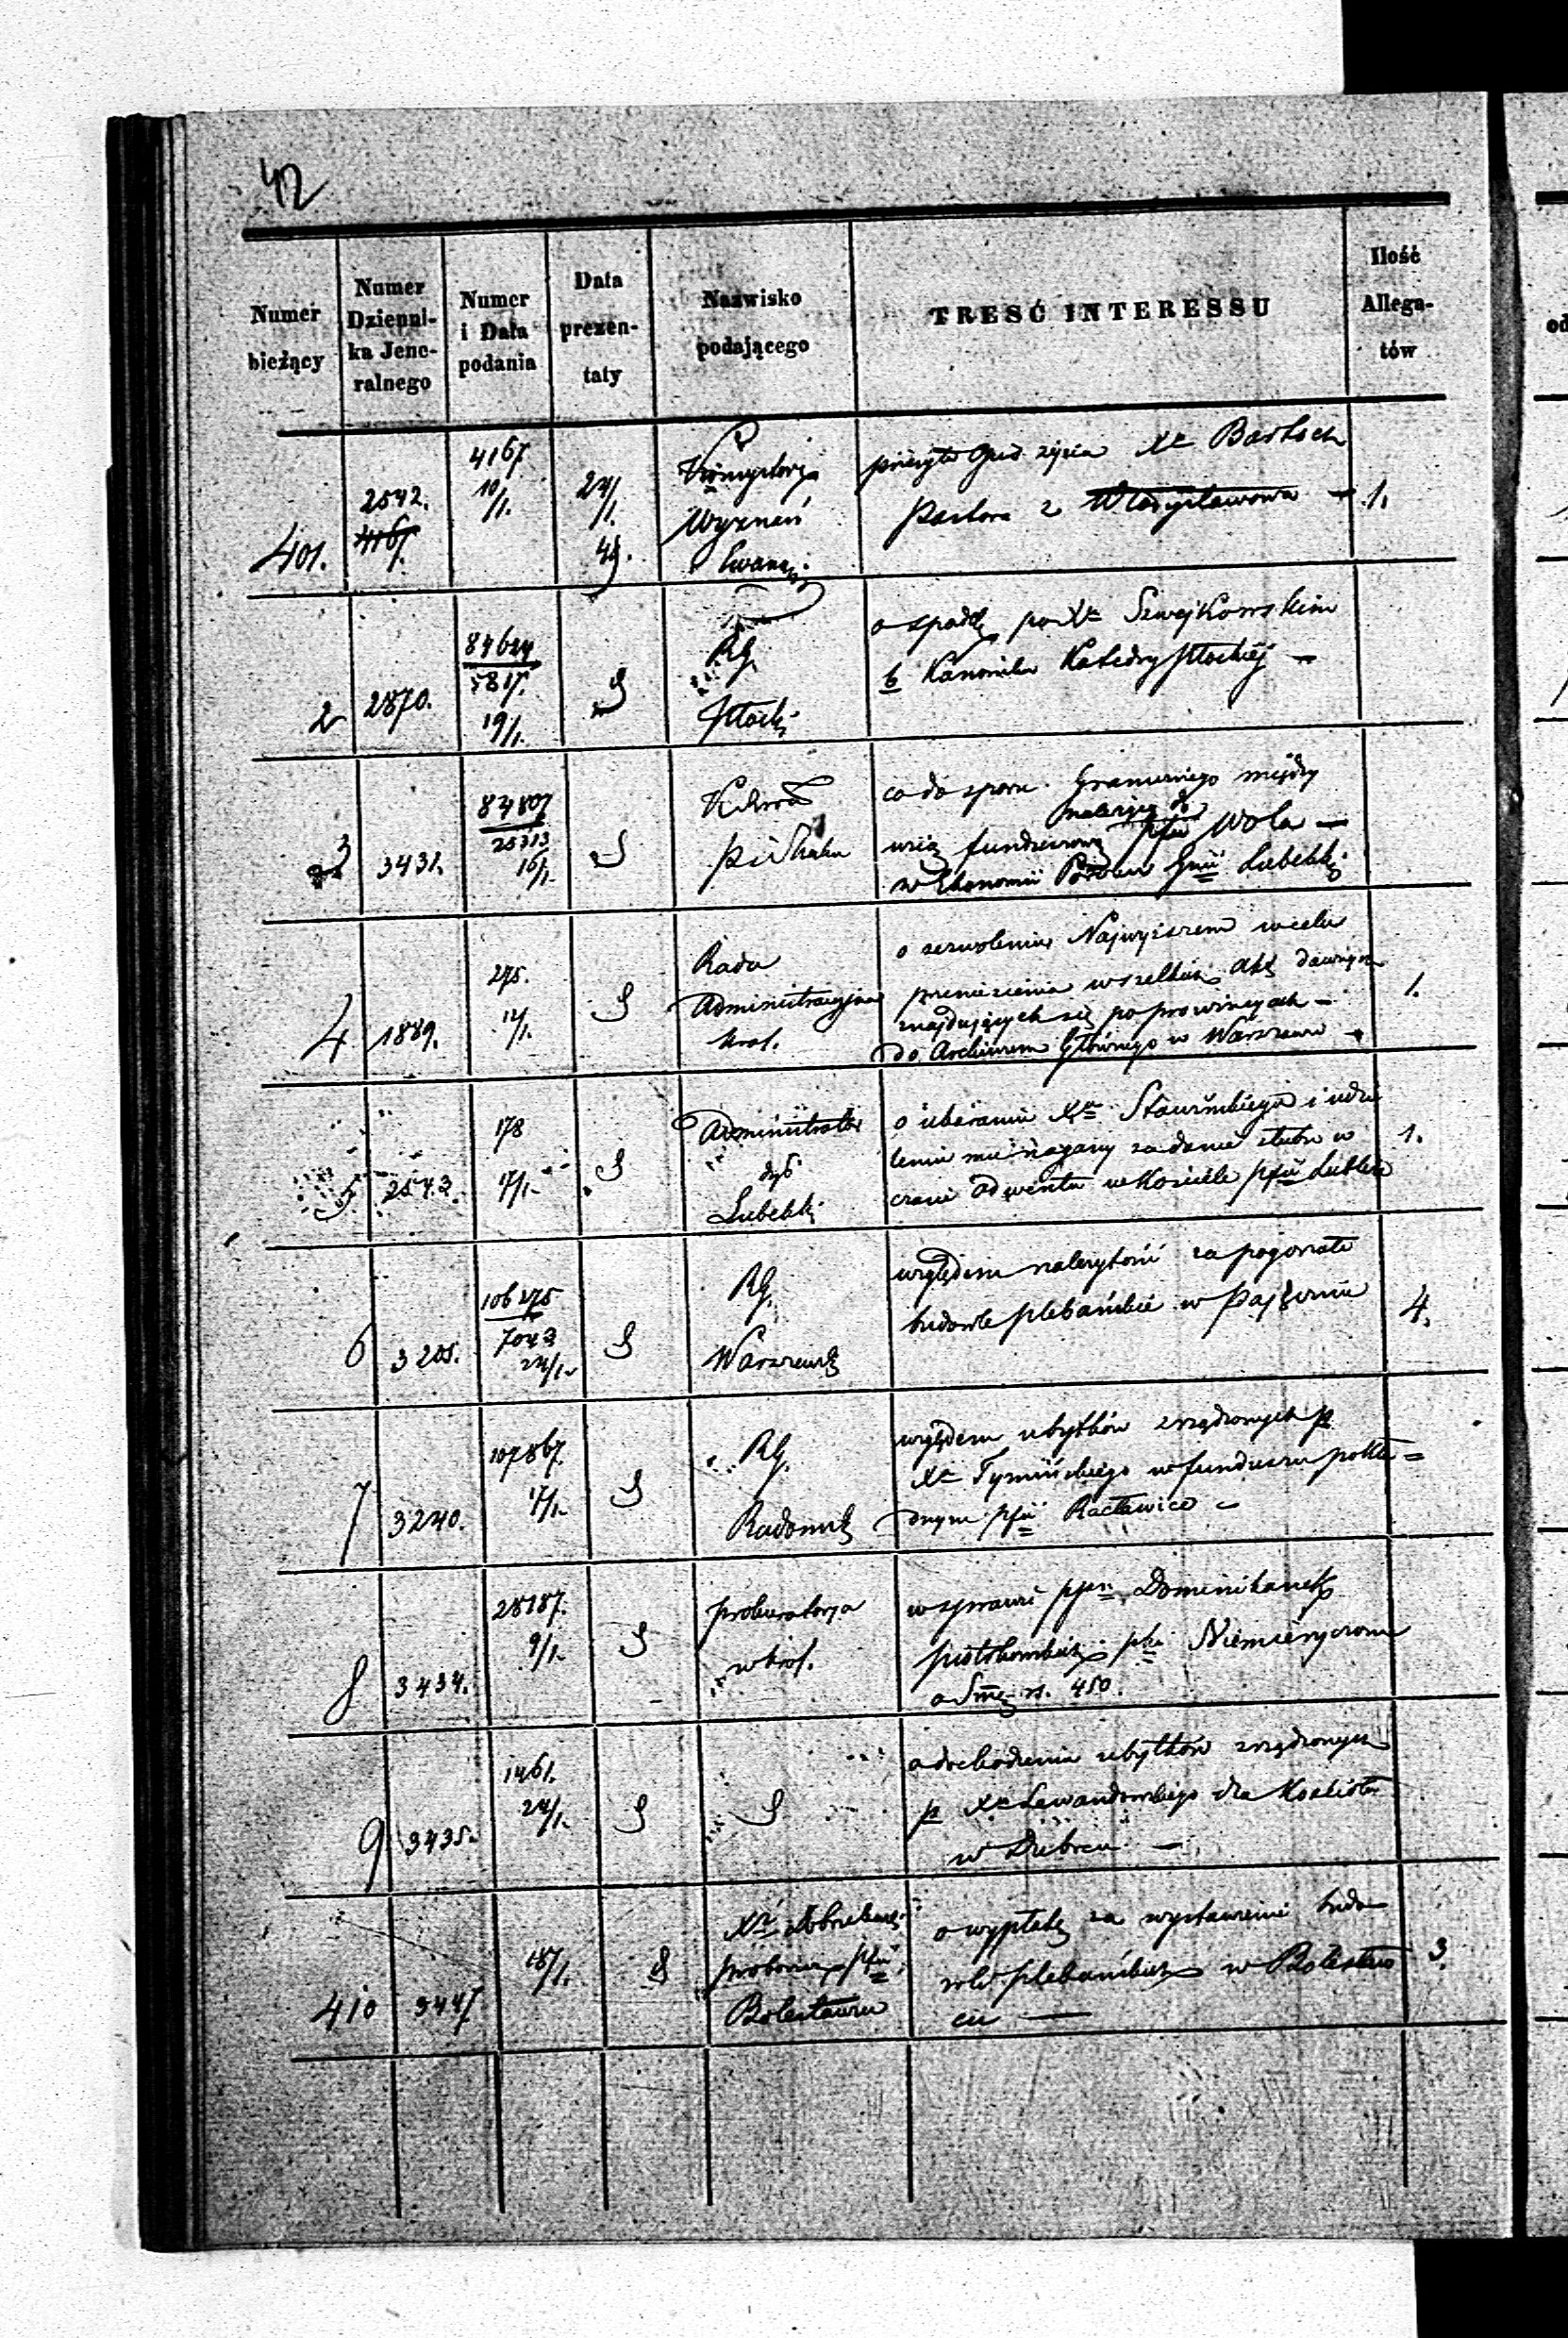 42
Numer bieżący
Numer Dzienni-ka Jene-ralnego
Numer i Data podania
Data prezen-taty
Nazwisko podającego
TREŚĆ INTERESSU
Ilość Allega-tów
401.
2542.
4167.
4167
10/1.
24/1.
Wyznań
Ewang.
Xa Bartsch
Pastora z Władysławowa
1.
2
2870.
84624
5817.
19/1.
S
RG.
Płocki
o spadek po Xu Szwejkowskim
b Kanoniku Katedry Płockiej
3
3431.
84807
25313
16/1.
S
co do sporu Granicznego między
należącą do
wsią funduszową pfii Wola
w Ekonomii Gnii Lubelskiej
4
1889.
275.
12/1.
S
Rada
Administracyjna
Król.
o zezwoleniu Najwyższem w celu
przeniesienia wszelkich akt dawnych
znajdujących się po prowincyach
do Archiwum Głównego w Warszawie
1.
5
2543.
178
17/1.
S
Administrator
dyć
Lubelski
o ukaranie Xa i udzie
lenie mu nagany za danie ślubu w
czasie adwentu w kościele pfii Lublin
1.
6
3205.
106275
7043
24/1.
S
RG.
Warszawski
względem należytości za pogorzałe
budowle plebańskie w Pajęcznie
4.
7
3240.
107867.
17/1.
S
RG.
Radomski
względem ubytków zrządzonych p
Xa Tymińskiego w funduszu pokła=
dnym pfii Racławice
8
3434.
28187.
9/1.
S
Prokuratorya
w Król.
w sprawie ppn Dominikanek
piotrkowskich pko Niemieryczom
o Smę rs. 450.
9
3435.
1461.
24/1.
S
S
o dochodzeniu ubytków zrządzonych
p Xa Lewandowskiego dla Kościoła
w
410
3447
18/1.
S
proboszcz pfii
Bolesławiu
o wypłatę za wystawienie budo
wli plebańskich w Bolesław
cu
3.